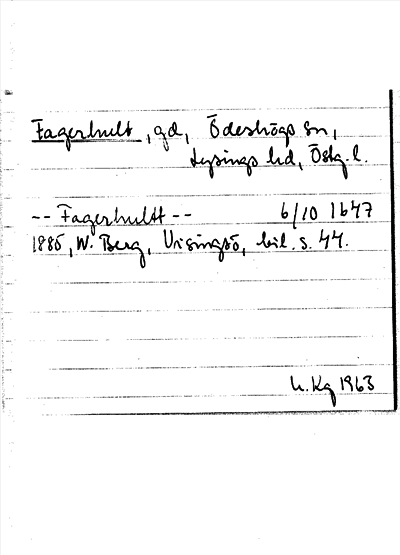 Fagerhult, gd, Ödeshögs sn,
Lysings hd, Östg. l.
-- Fagerhultt -- 6/10 1647
1885, W. Berg, Visingsö, bil. s. 44.
H. Kg 1963